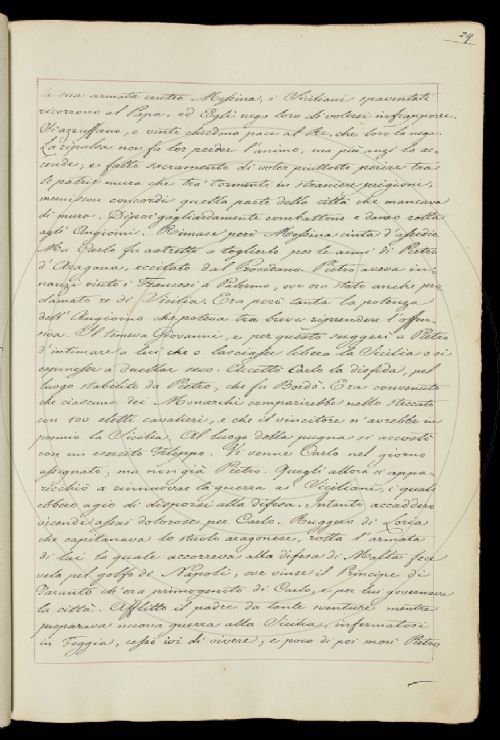 29
la sua armata contro Messina, i Siciliani spaventati
ricorrono al Papa, ed Egli nega loro di volersi infrapporre.
Si azzuffano, e vinti chiedono pace al Re, che loro la nega.
La ripulsa non fà lor perder l'animo, ma più anzi lo ac-
cende; e fatto sacramento di voler piuttosto perire tra
le patrie mura che tra' tormenti in straniere prigioni,
muniscon concordi quella parte della città che mancava
di mura. Dipoi gagliardamente combattono e danno rotta
agli Angioini. Rimase però Messina cinta d'assedio
Ma Carlo fu astretto a toglierlo per le armi di Pietro
d'Aragona, eccitato dal Procidano. Pietro aveva in-
nanzi vinto i Francesi a Palermo, ove era stato anche pro
clamato re di Sicilia. Era però tanta la potenza
dell'Angioino che poteva tra breve riprendere l'offen-
siva. Il temeva Giovanni, e per questo suggerì a Pietro
d'intimare a lui che o lasciasse libera la Sicilia o si
esponesse a duellar seco. Accettò Carlo la disfida, pel
luogo stabilito da Pietro, che fu Bordò. Era convenuto
che ciascuno dei Monarchi comparirebbe nello steccato
con 100 eletti cavalieri, e che il vincitore n'avrebbe in
premio la Sicilia. Al luogo della pugna si accostò
con un esercito Filippo. Vi venne Carlo nel giorno
assegnato, ma non già Pietro. Quegli allora si appa-
recchiò a rinnuovare la guerra ai Siciliani, i quali
ebbero agio di disporsi alla difesa. Intanto accaddero
vicende assai dolorose per Carlo. Ruggero di Loria
che capitanava lo stuolo aragonese, rotta l'armata
di lui la quale accorreva alla difesa di Malta fece
vela pel golfo di Napoli, ove vinse il Principe di
Taranto ch'era primogenito di Carlo, e per lui governava
la città. Afflitto il padre da tante sventure mentre
preparava nuova guerra alla Sicilia, infermatosi
in Foggia, cessò ivi di vivere, e poco di poi morì Pietro